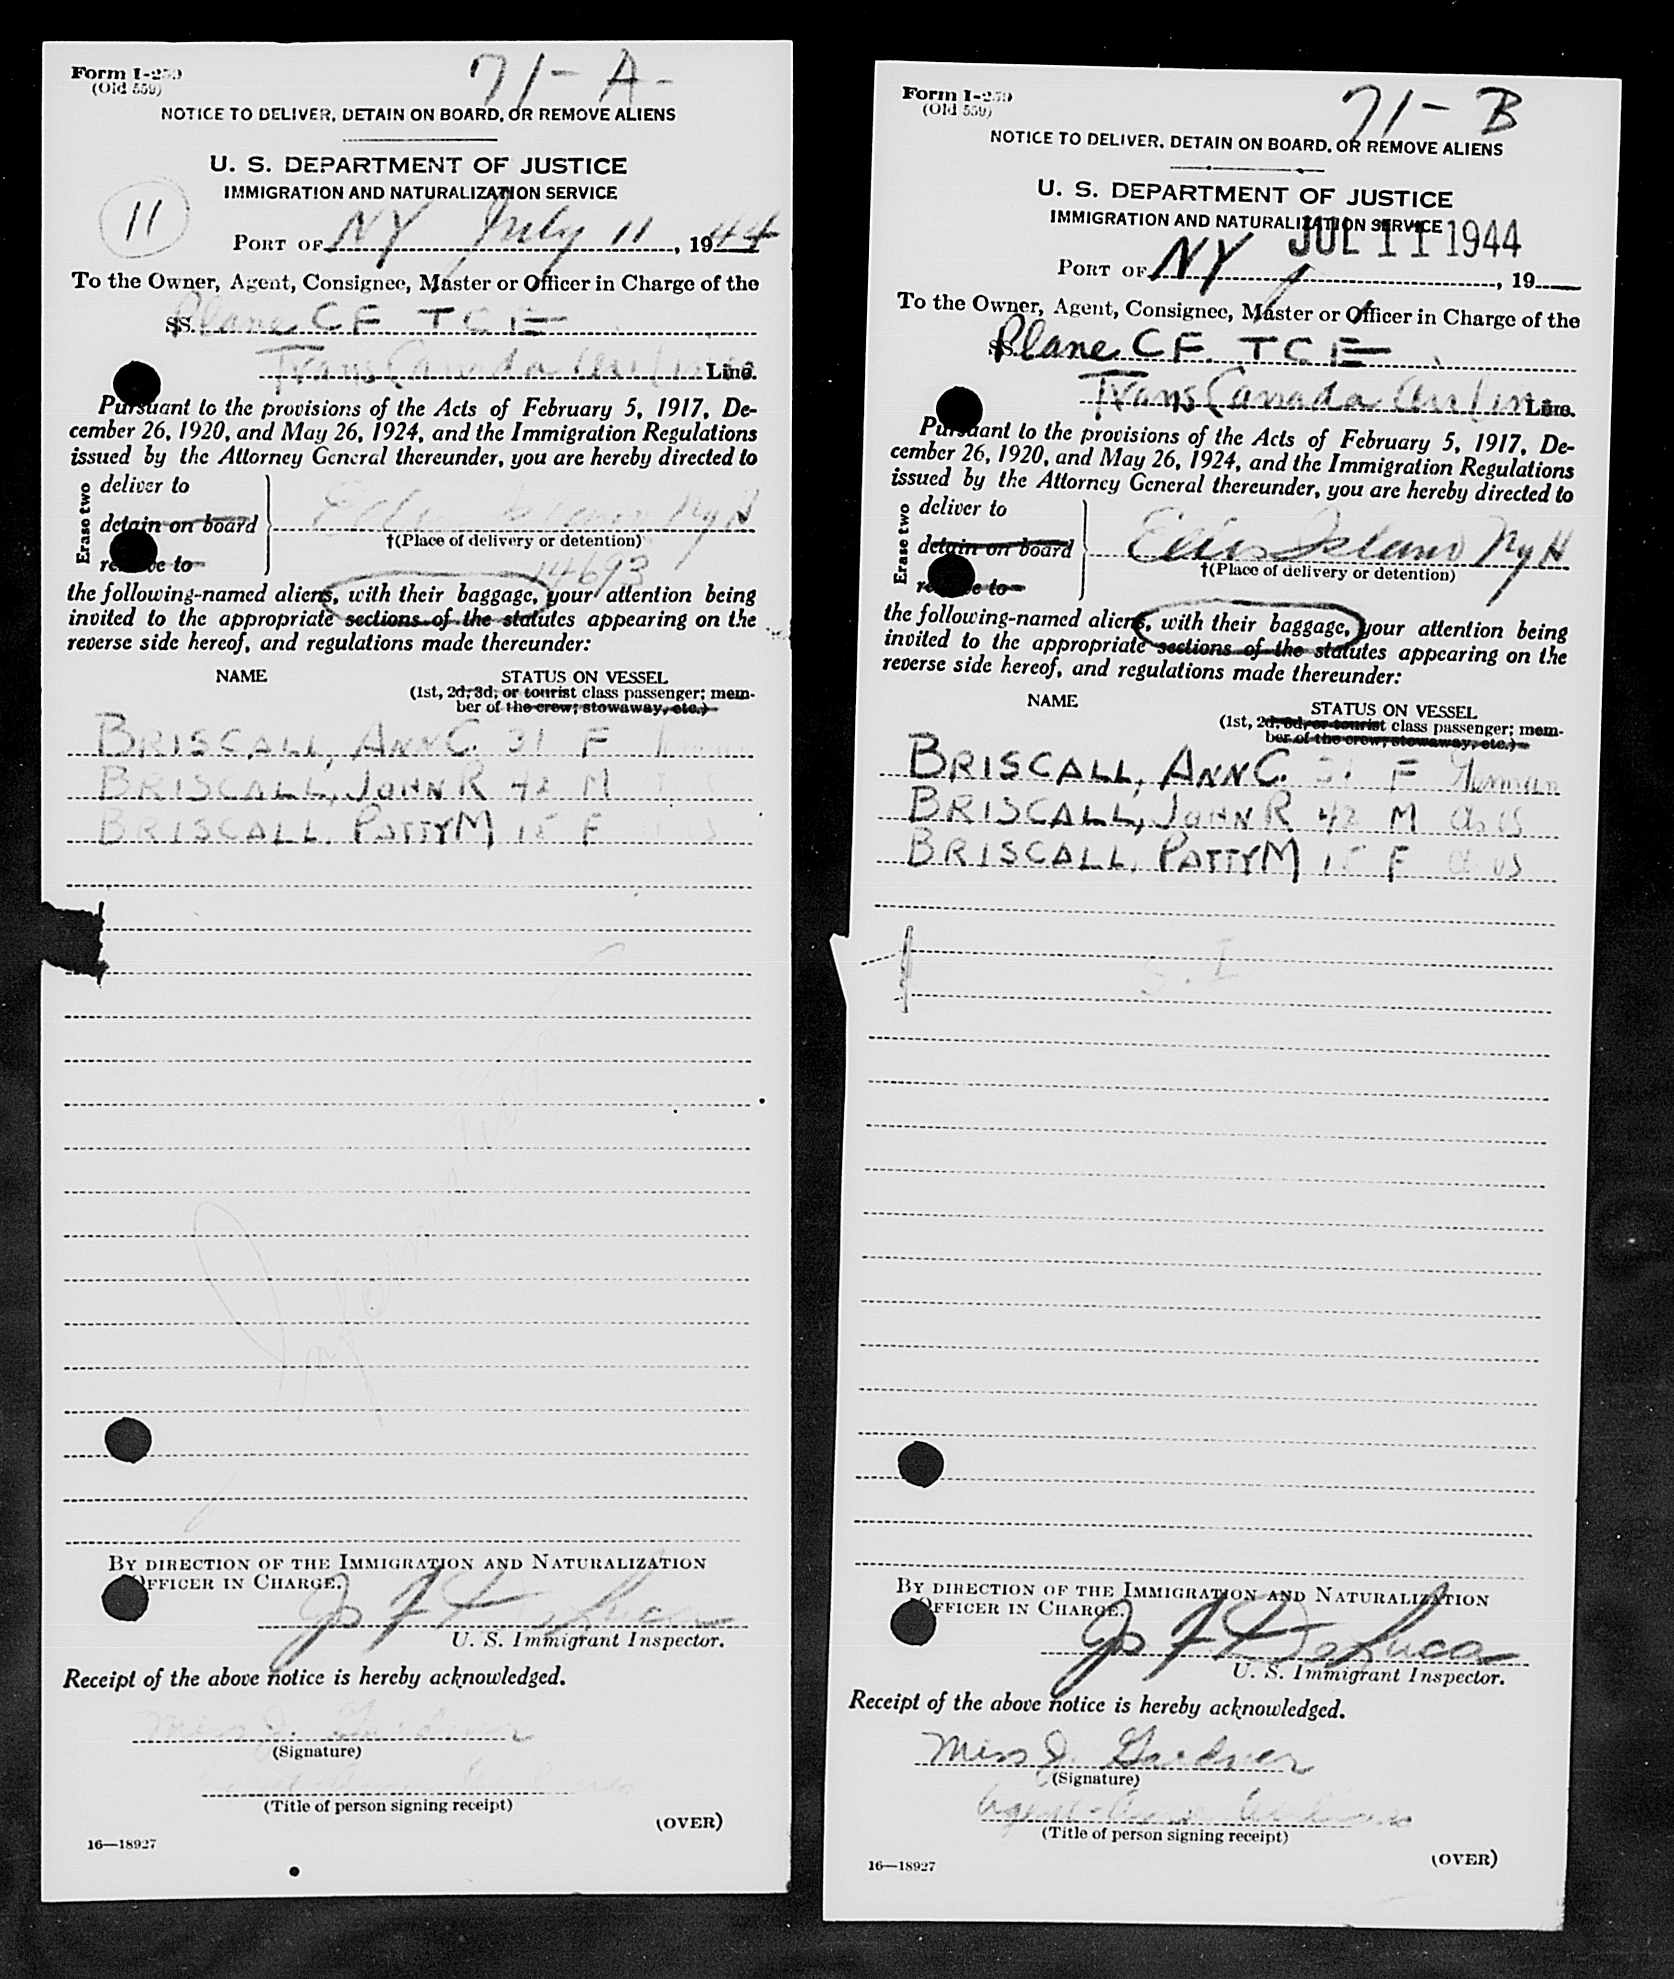 Form I-259
(Old 559)
71-A-
NOTICE TO DELIVER, DETAIN ON BOARD, OR REMOVE ALIENS
U. S. DEPARTMENT OF JUSTICE
IMMIGRATION AND NATURALIZATION SERVICE
11
PORT OF NY July 11, 1944
To the Owner, Agent, Consignee, Master or Officer in Charge of the
SS. Plane CF TCE
Trans Canada Line.
Pursuant to the provisions of the Acts of February 5, 1917, De-
cember 26, 1920, and May 26, 1924, and the Immigration Regulations
issued by the Attorney General thereunder, you are hereby directed to
Erase two
deliver to
detain on board
to
Island NyH
†(Place of delivery or detention)
14693
the following-named aliens, with their baggage, your attention being
invited to the appropriate sections of the statutes appearing on the
reverse side hereof, and regulations made thereunder:
NAME
STATUS ON VESSEL
(1st, 2d, 3d, or tourist class passenger; mem-
ber of the crew; stowaway, etc.)
BRISCALL, ANN C. 31 F
BRISCALL, JOHN R 42 M
BRISCALL, PATTY M 15 F
BY DIRECTION OF THE IMMIGRATION AND NATURALIZATION
OFFICER IN CHARGE.
Jos F DeLuca
U. S. Immigrant Inspector.
Receipt of the above notice is hereby acknowledged.
Miss J. Gardner
(Signature)
(Title of person signing receipt)
(OVER)
16—18927
Form I-259
(Old 559)
71-B
NOTICE TO DELIVER, DETAIN ON BOARD, OR REMOVE ALIENS
U. S. DEPARTMENT OF JUSTICE
IMMIGRATION AND NATURALIZATION SERVICE
JUL 11 1944
PORT OF NY, 19
To the Owner, Agent, Consignee, Master or Officer in Charge of the
SS. Plane CF TCE
Trans Canada Airlines Line.
Pursuant to the provisions of the Acts of February 5, 1917, De-
cember 26, 1920, and May 26, 1924, and the Immigration Regulations
issued by the Attorney General thereunder, you are hereby directed to
Erase two
deliver to
detain on board
to
Ellis Island NyH
†(Place of delivery or detention)
the following-named aliens, with their baggage, your attention being
invited to the appropriate sections of the statutes appearing on the
reverse side hereof, and regulations made thereunder:
NAME
STATUS ON VESSEL
(1st, 2d, 3d, or tourist class passenger; mem-
ber of the crew; stowaway, etc.)
BRISCALL, ANN C. 31 F German
BRISCALL, JOHN R 42 M US
BRISCALL, PATTY M 15 F US
S.I
BY DIRECTION OF THE IMMIGRATION AND NATURALIZATION
OFFICER IN CHARGE.
Jos F. DeLuca
U. S. Immigrant Inspector.
Receipt of the above notice is hereby acknowledged.
Miss J. Gardner
(Signature)
Agent
(Title of person signing receipt)
(OVER)
16—18927